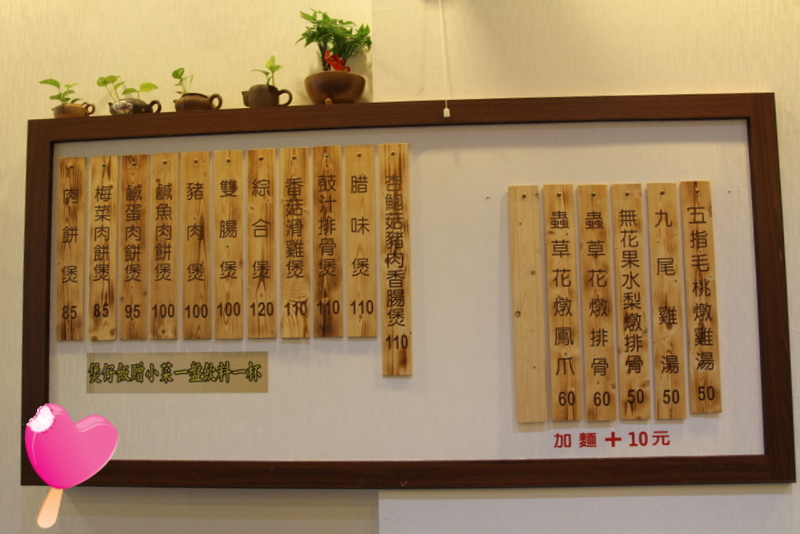 肉餅煲 85
梅菜肉餅煲 85
鹹蛋肉餅煲 95
鹹魚肉餅煲 100
豬肉煲 100
雙腸煲 100
綜合煲 120
香菇滑雞煲 110
豉汁排骨煲 110
腊味煲 110
杏鮑菇豬肉香腸煲 110
煲仔飯贈小菜一盤飲料一杯
蟲草花燉鳳爪 60
蟲草花燉排骨 60
無花果水梨燉排骨 50
九尾雞湯 50
五指毛桃燉雞湯 50
加麵+10元